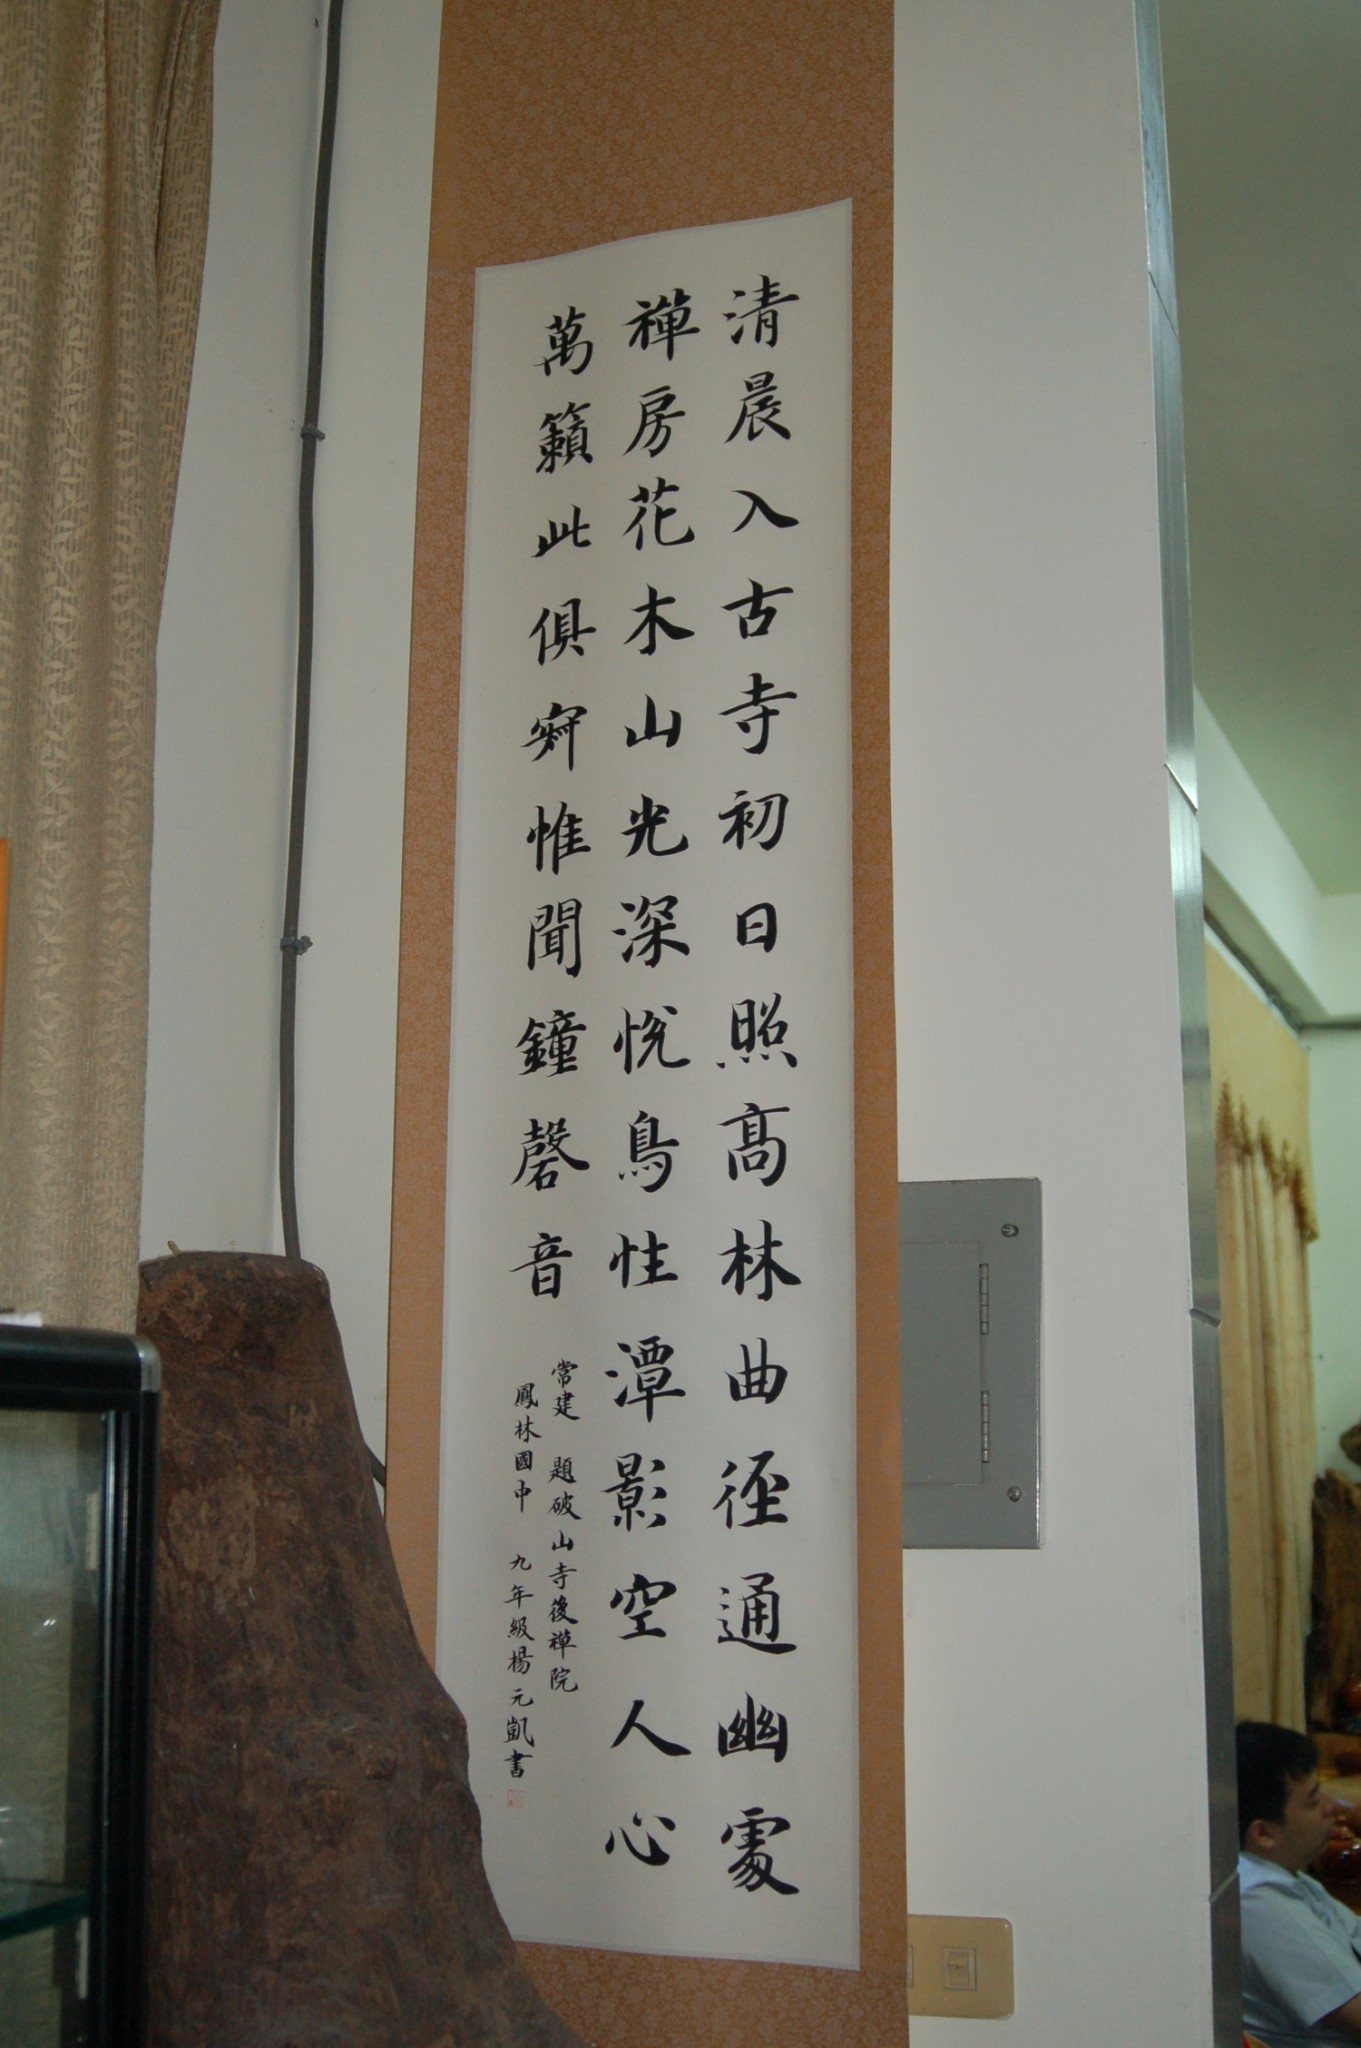 清晨入古寺初日照高林曲徑通幽處
禪房花木山光深悅鳥性潭影空人心
萬籟此俱寂惟聞鐘磬音
常建 題破山寺後禪院
鳳林國中 九年級楊元凱書